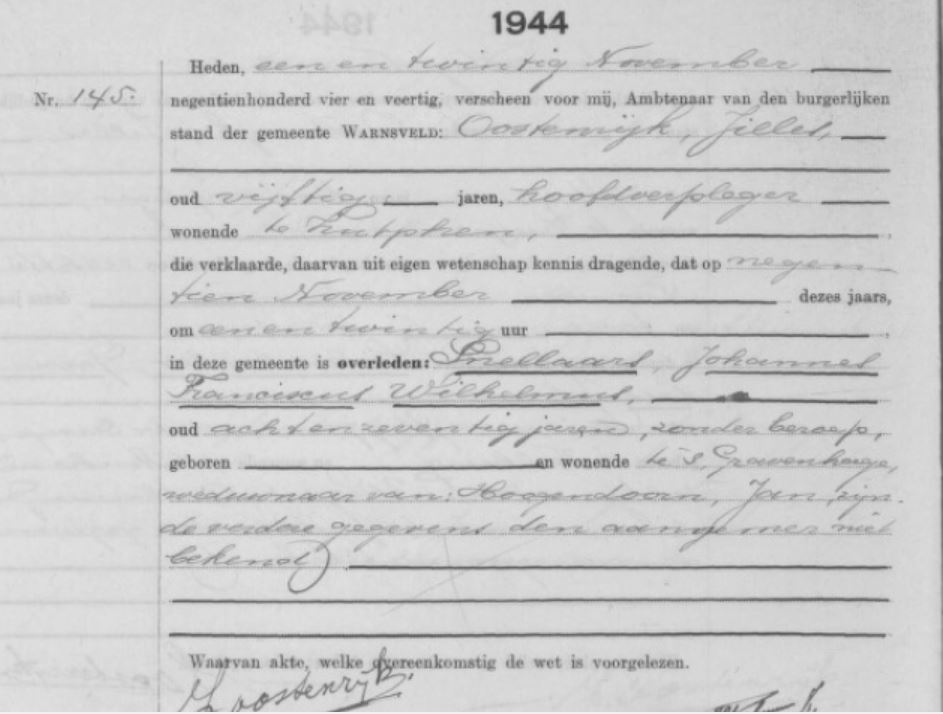 1944
Heden, een en twintig November
Nr. 145. negentienhonderd vier en veertig, verscheen voor mij, Ambtenaar van den burgerlijken
stand der gemeente WARNSVELD: Oostenrijk, Jilles,
oud vijftig jaren, hoofdverpleger
wonende te Zutphen,
die verklaarde, daarvan uit eigen wetenschap kennis dragende, dat op negen-
tien November dezes jaars,
om een en twintig uur
in deze gemeente is overleden: Snellaars, Johannes
Franciscus Wilhelmus,
oud acht en zeventig jaren, zonder beroep,
geboren en wonende te 's Gravenhage,
weduwnaar van: Hoogendoorn, Jan, zijn-
de verdere gegevens den aannemer niet
bekend
Waarvan akte, welke overeenkomstig de wet is voorgelezen.
J Oostenrijk.